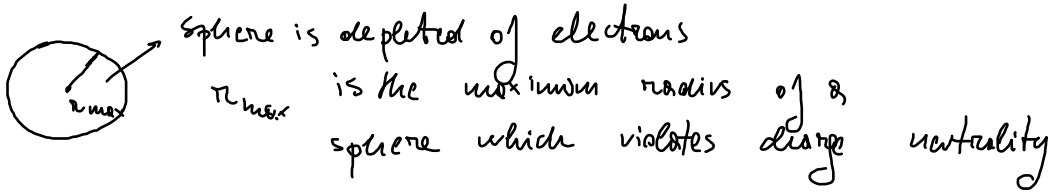 sphere is depleted of electrons
r max is the maximum radius of a
r max
sphere which violates charge neutrality